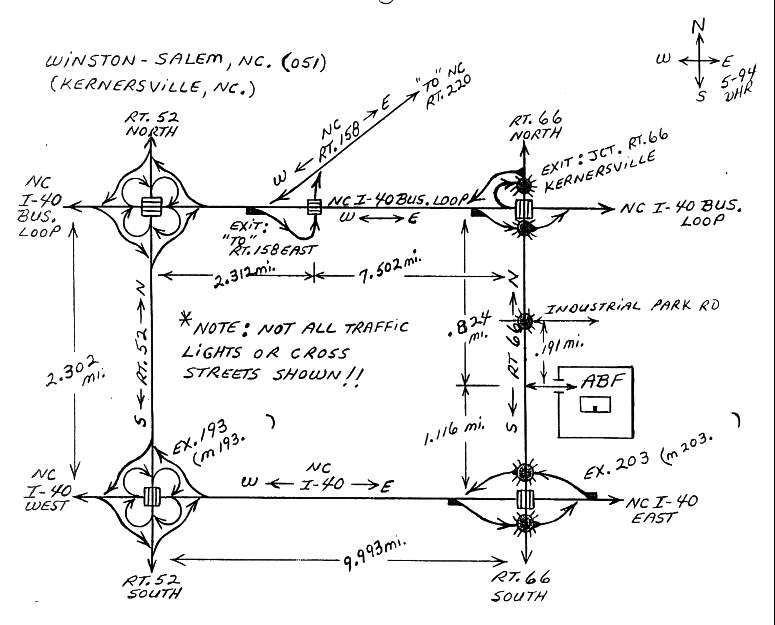 WINSTON-SALEM, NC. (051)
(KERNERSVILLE, NC.)
N
W
E
S
5-94
RT. 52
NORTH
NC
RT. 158
W
E
"TO" NC
RT. 220
RT. 66
NORTH
EXIT: JCT. RT. 66
KERNERSVILLE
NC
I-40
BUS.
LOOP
NC I-40 BUS. LOOP
W
E
NC I-40 BUS.
LOOP
EXIT:
"TO"
RT. 158 EAST
2.312 mi.
7.502 mi.
S
RT. 52
N
*NOTE: NOT ALL TRAFFIC
LIGHTS OR CROSS
STREETS SHOWN!!
2.302
mi.
.824
mi.
S
RT 66
N
INDUSTRIAL PARK RD
.191 mi.
ABF
1.116 mi.
EX. 193
(m 193. )
EX. 203 (m 203. )
NC
I-40
WEST
NC
W
I-40
E
NC I-40
EAST
9.993 mi.
RT. 52
SOUTH
RT. 66
SOUTH